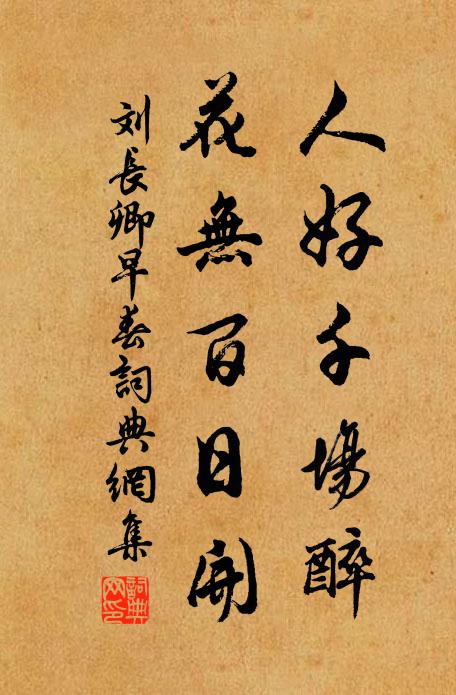 人好千場醉
花無百日開
刘長卿早春詞典網集
詞典网印